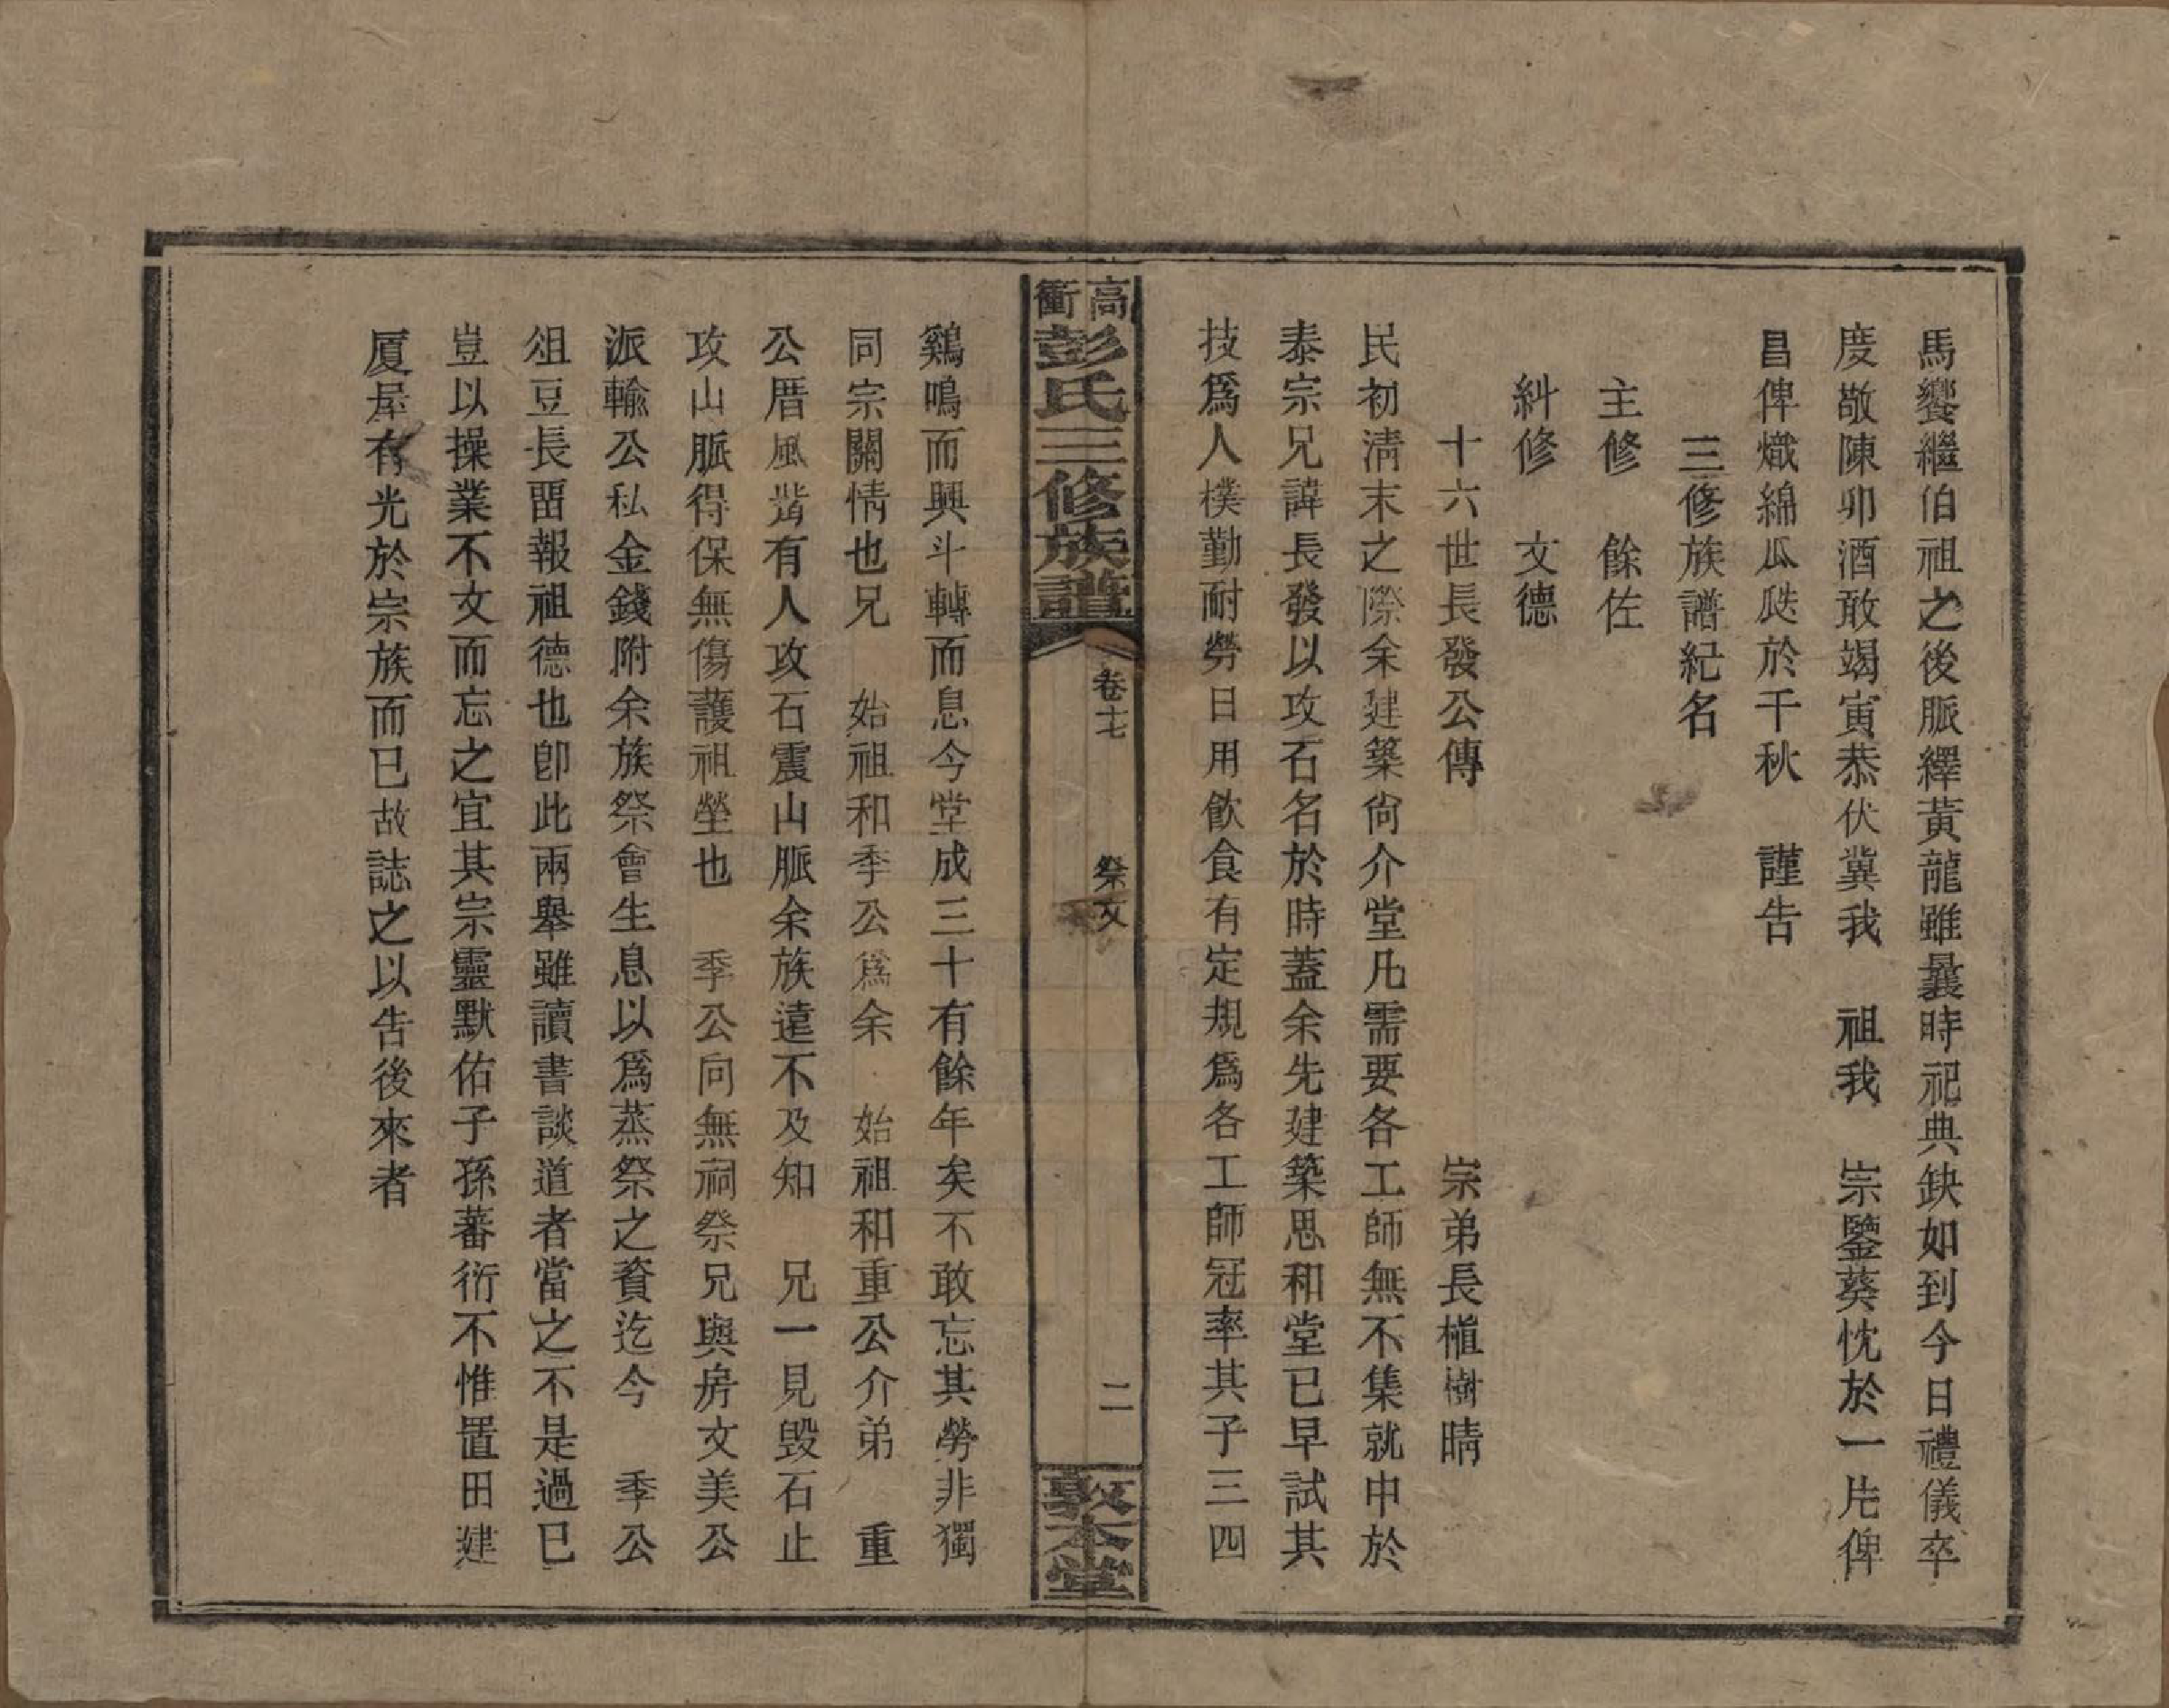 馬鬢繼伯祖之後脈繹黃龍雖曩時祀典缺如到今日禮儀卒
度敬陳卯酒敢竭寅恭伏冀我　祖我　宗鑒葵忱於一片俾
昌俾熾綿瓜瓞於千秋　謹告
三修族譜紀名
主修　餘佐
糾修　文德
十六世長發公傳　宗弟長植樹晴
民初淸末之際余建築尙介堂凡需要各工師無不集就申於
泰宗兄諱長發以攻石名於時蓋余先建築思和堂已早試其
技爲人樸勤耐勞日用飮食有定規爲各工師冠率其子三四
高衝彭氏三修族譜　卷十七　祭文　二　敦本堂
鷄鳴而興斗轉而息今堂成三十有餘年矣不敢忘其勞非獨
同宗關情也兄　始祖和季公爲余　始祖和重公介弟　重
公厝風獃有人攻石震山脈余族遠不及知　兄一見毀石止
攻山脈得保無傷護祖塋也　季公向無祠祭兄與房文美公
派輸公私金錢附余族祭會生息以爲蒸祭之資迄今　季公
俎豆長畱報祖德也卽此兩舉雖讀書談道者當之不是過已
豈以操業不文而忘之宜其宗靈默佑子孫蕃衍不惟置田建
厦屋有光於宗族而已故誌之以告後來者